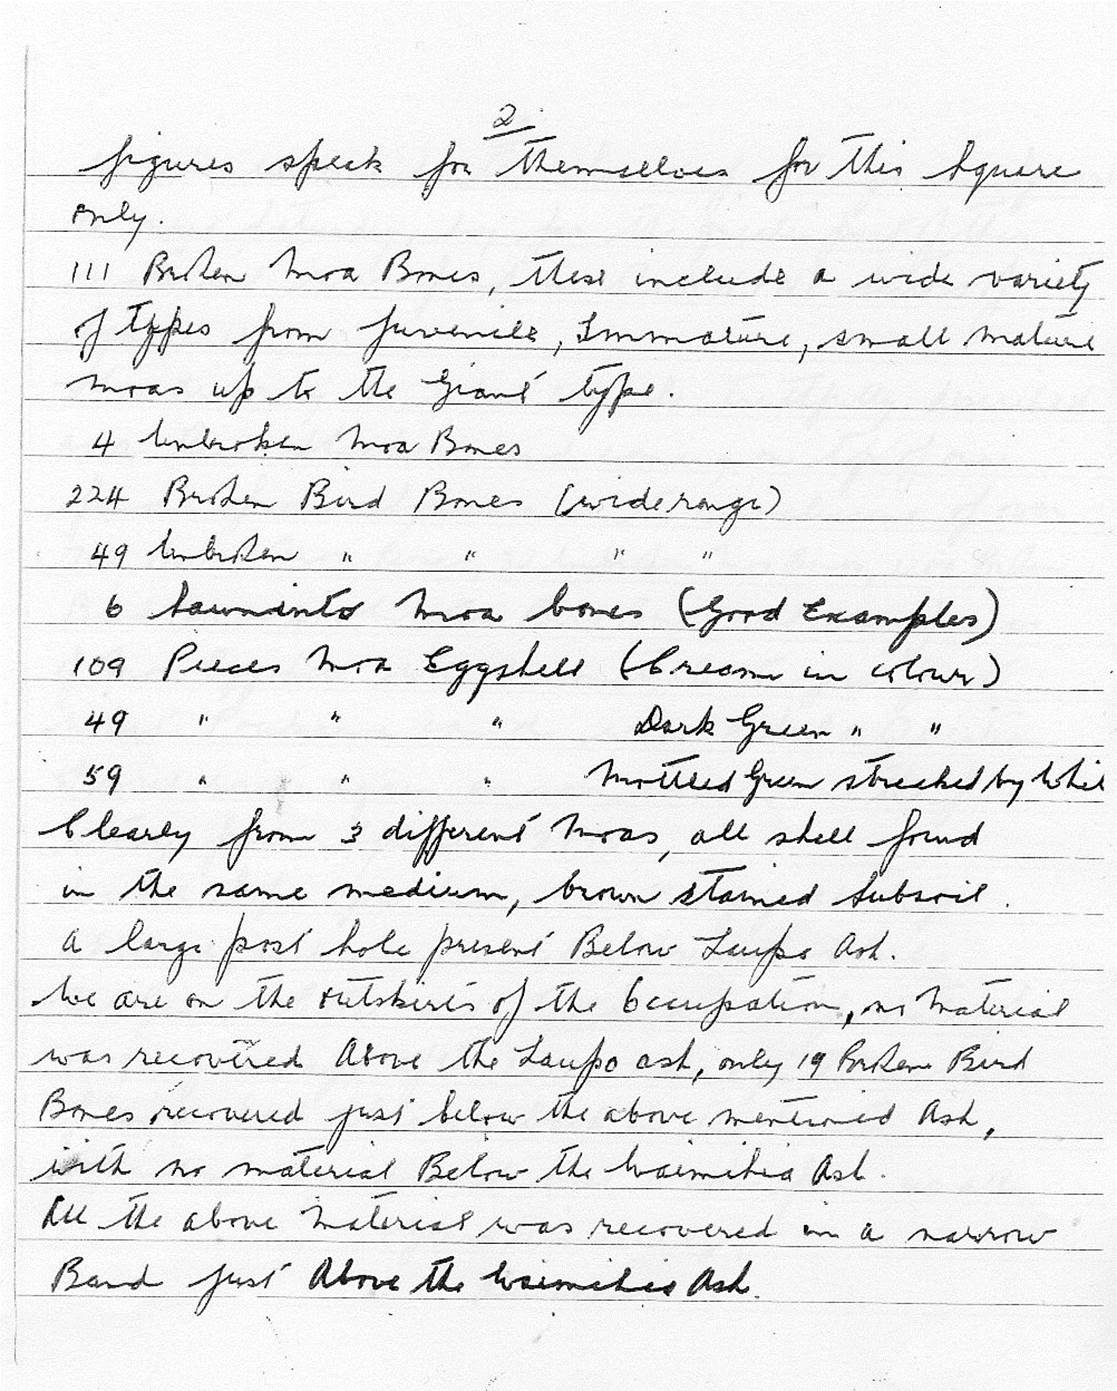 2
figures speak for themselves for this Square
only.
111 Broken Moa Bones, these include a wide variety
of types from Juvenile, Immature, small mature
moas up to the Giant type.
4 Unbroken Moa Bones
224 Broken Bird Bones (wide range)
49 Unbroken " " " "
6 Sawn into Moa bones (Good Examples)
109 Pieces Moa Eggshell (Cream in colour)
49 " " " Dark Green " "
59 " " " Mottled Green streaked by Whit
Clearly from 3 different Moas, all shell found
in the same medium, brown stained Subsoil.
A large post hole present Below Taupo Ash.
We are on the outskirts of the Occupation, no Material
was recovered Above the Taupo ash, only 19 Broken Bird
Bones recovered just below the above mentioned Ash,
with no material Below the Waimihia Ash.
All the above Material was recovered in a narrow
Band just Above the Waimihia Ash.